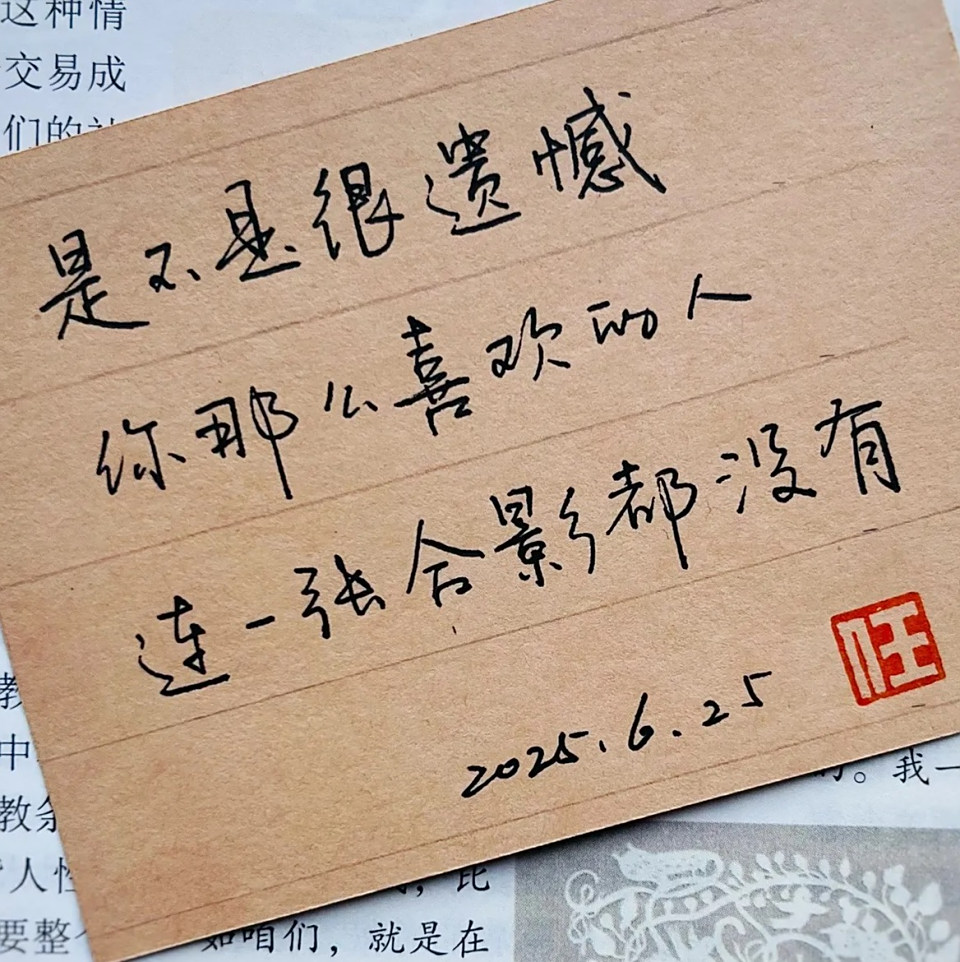 这种情
交易成
们的
是不是很遗憾
你那么喜欢的人
连一张合影都没有
2025.6.25
旺
教
中
的。我一
教条
人性
要整个
如咱们，就是在